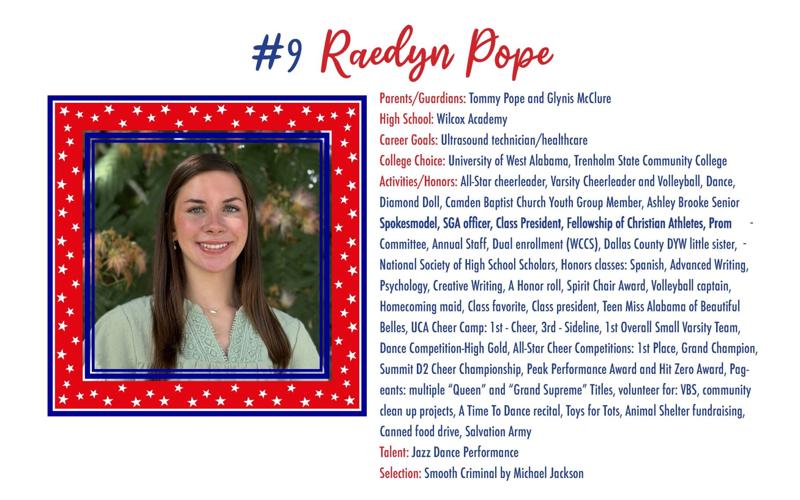 #9 Raedyn Pope
Parents/Guardians: Tommy Pope and Glynis McClure
High School: Wilcox Academy
Career Goals: Ultrasound technician/healthcare
College Choice: University of West Alabama, Trenholm State Community College
Activities/Honors: All-Star cheerleader, Varsity Cheerleader and Volleyball, Dance,
Diamond Doll, Camden Baptist Church Youth Group Member, Ashley Brooke Senior
Spokesmodel, SGA officer, Class President, Fellowship of Christian Athletes, Prom -
Committee, Annual Staff, Dual enrollment (WCCS), Dallas County DYW little sister, -
National Society of High School Scholars, Honors classes: Spanish, Advanced Writing,
Psychology, Creative Writing, A Honor roll, Spirit Chair Award, Volleyball captain,
Homecoming maid, Class favorite, Class president, Teen Miss Alabama of Beautiful
Belles, UCA Cheer Camp: 1st - Cheer, 3rd - Sideline, 1st Overall Small Varsity Team,
Dance Competition-High Gold, All-Star Cheer Competitions: 1st Place, Grand Champion,
Summit D2 Cheer Championship, Peak Performance Award and Hit Zero Award, Pag-
eants: multiple “Queen” and “Grand Supreme” Titles, volunteer for: VBS, community
clean up projects, A Time To Dance recital, Toys for Tots, Animal Shelter fundraising,
Canned food drive, Salvation Army
Talent: Jazz Dance Performance
Selection: Smooth Criminal by Michael Jackson